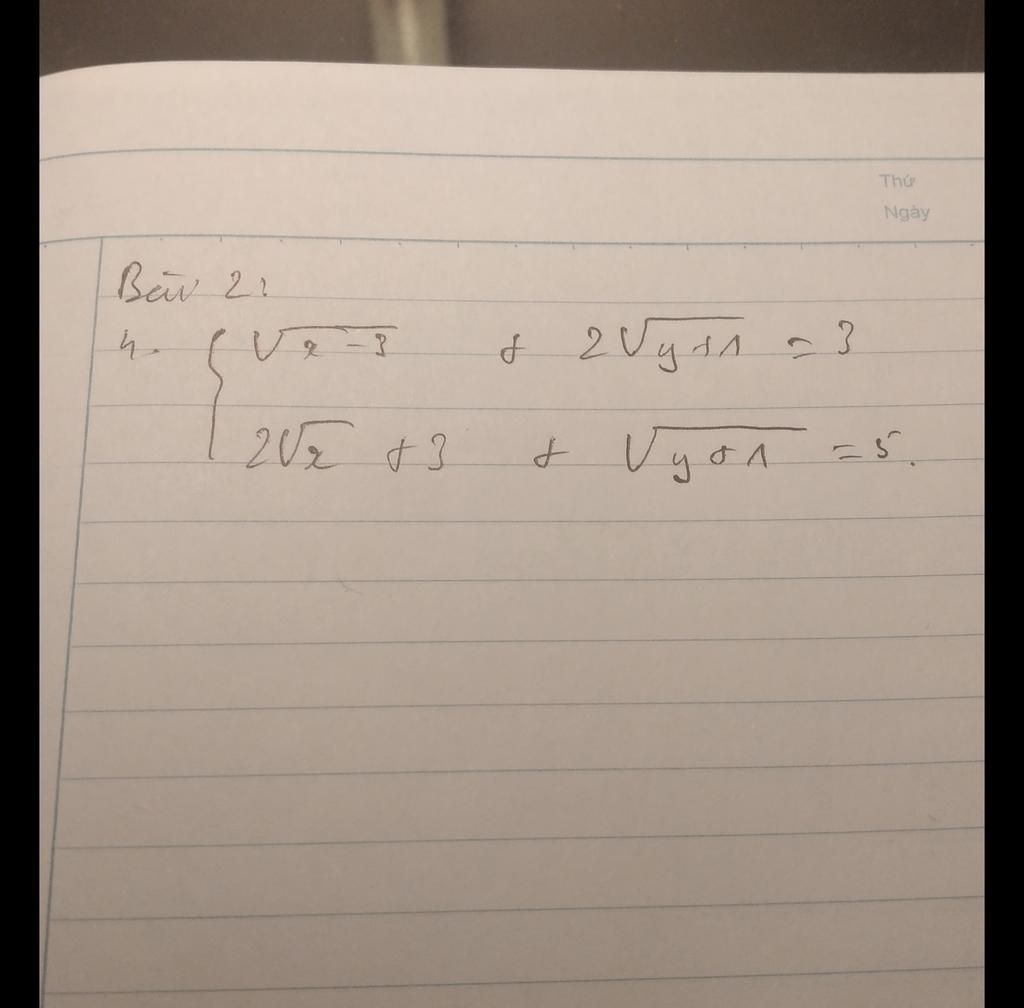 Thứ
Ngày
Bài 2:
4. { √(x-3) + 2√(y+1) = 3
2√x + 3 + √(y+1) = 5.